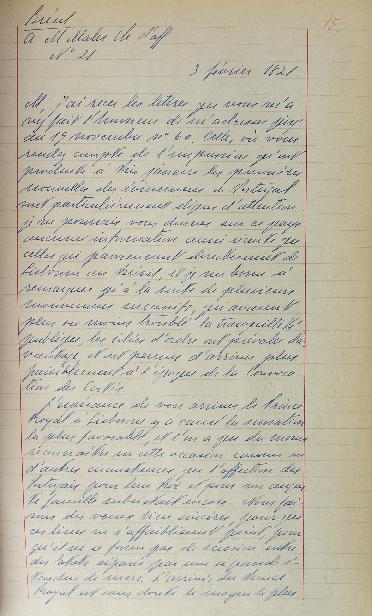 Brésil
15
A M Maler Ch. d'aff
N° 21
3 février 1821
M. j'ai reçu les lettres que vous m'a-
vez fait l'honneur de m'adresser
du 19 novembre n° 60. Celles où vous
rendez compte de l'impression qu'ont
produite à Rio Janeiro les premières
nouvelles des événements de Portugal
ont particulièrement d'attention
je ne pourrais vous donner sur ce pays
aucune information aussi récente que
celles qui parviennent directement de
Lisbonne au Brésil, il y me borne à
remarquer qu'à la suite de plusieurs
mouvements successifs, qui avaient
plus ou moins troublé la tranquillité
publique, les idées d'ordre ont
et ont permis d'arriver plus
paisiblement à l'époque de la Convoca-
tion des Cortès.
L'espérance de voir arriver le Prince
Royal à Lisbonne y a causé la sensation
la plus favorable, et l'on a pu du moins
reconnaître en cette occasion comme en
d'autres circonstances que l'affection des
Portugais pour leur Roi et pour son auguste
famille subsistait encore. Nous fai-
sons des vœux bien sincères pour que
ces liens ne s'affaiblissent point, pour
qu'il ne se forme pas de scission entre
des Etats séparés par une si grande é-
tendue de mers. L'arrivée du Prince
Royal est sans doute le moyen le plus